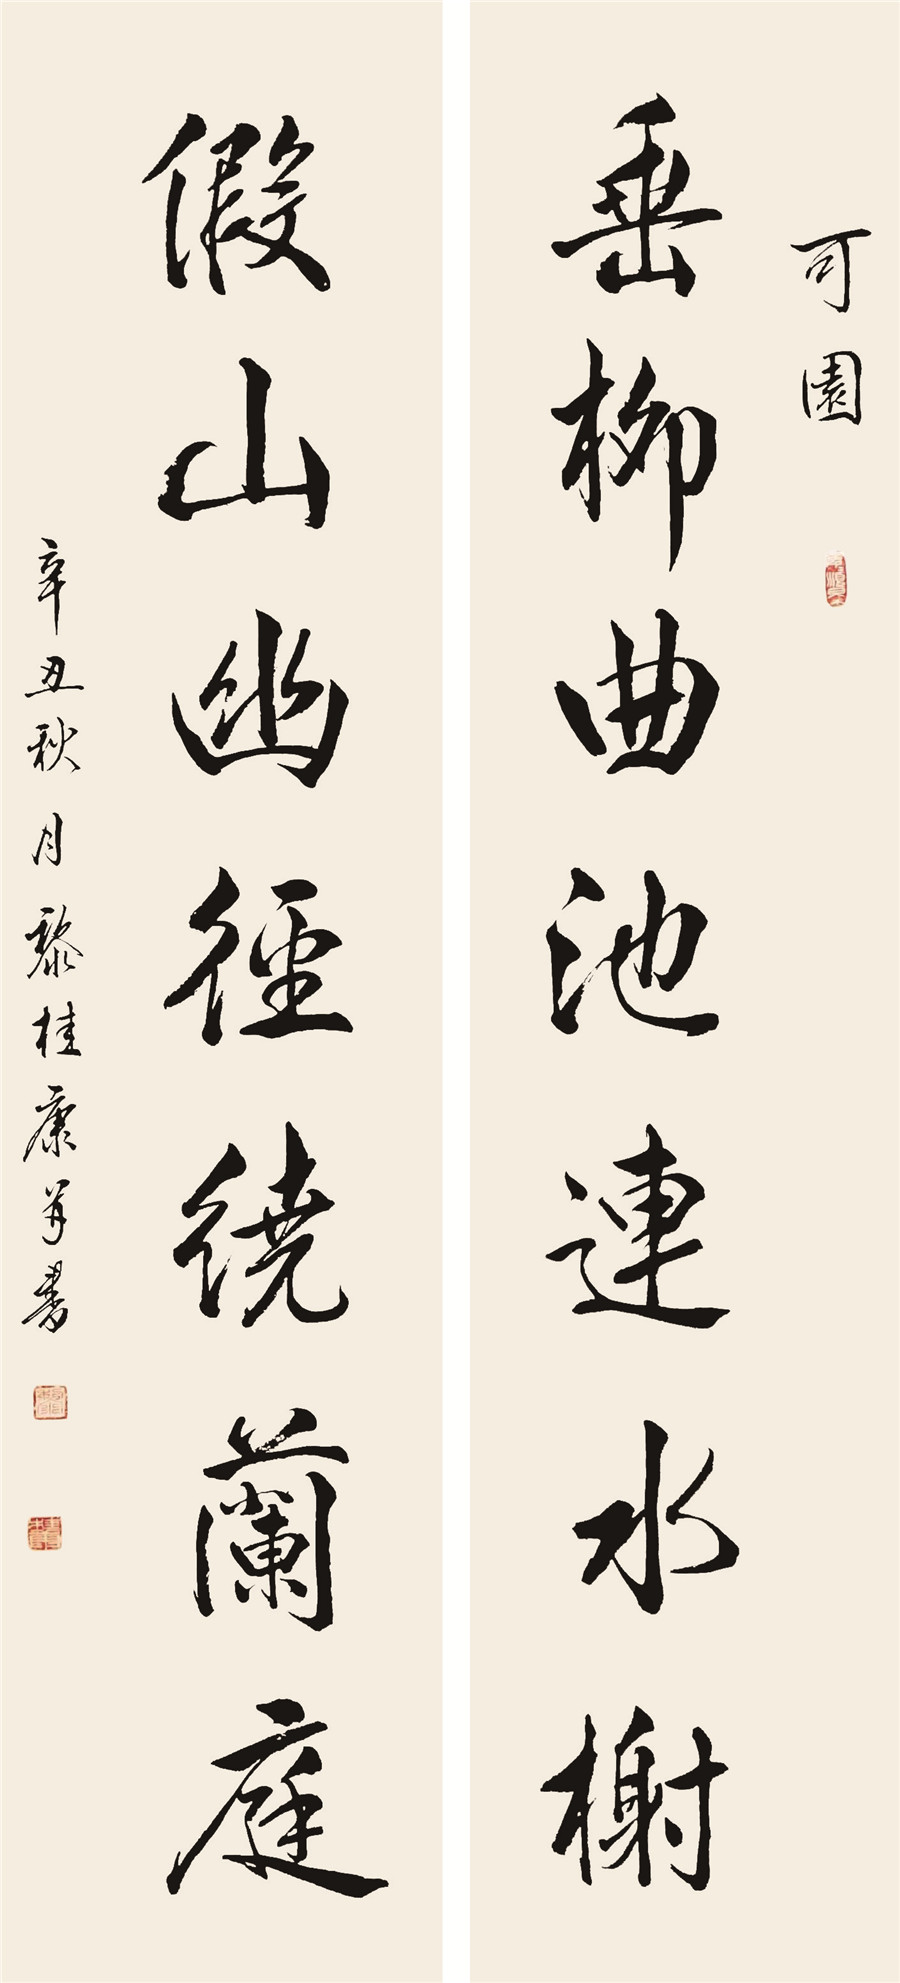 可園
垂柳曲池連水榭
假山幽徑繞蘭庭
辛丑秋月黎桂康并書